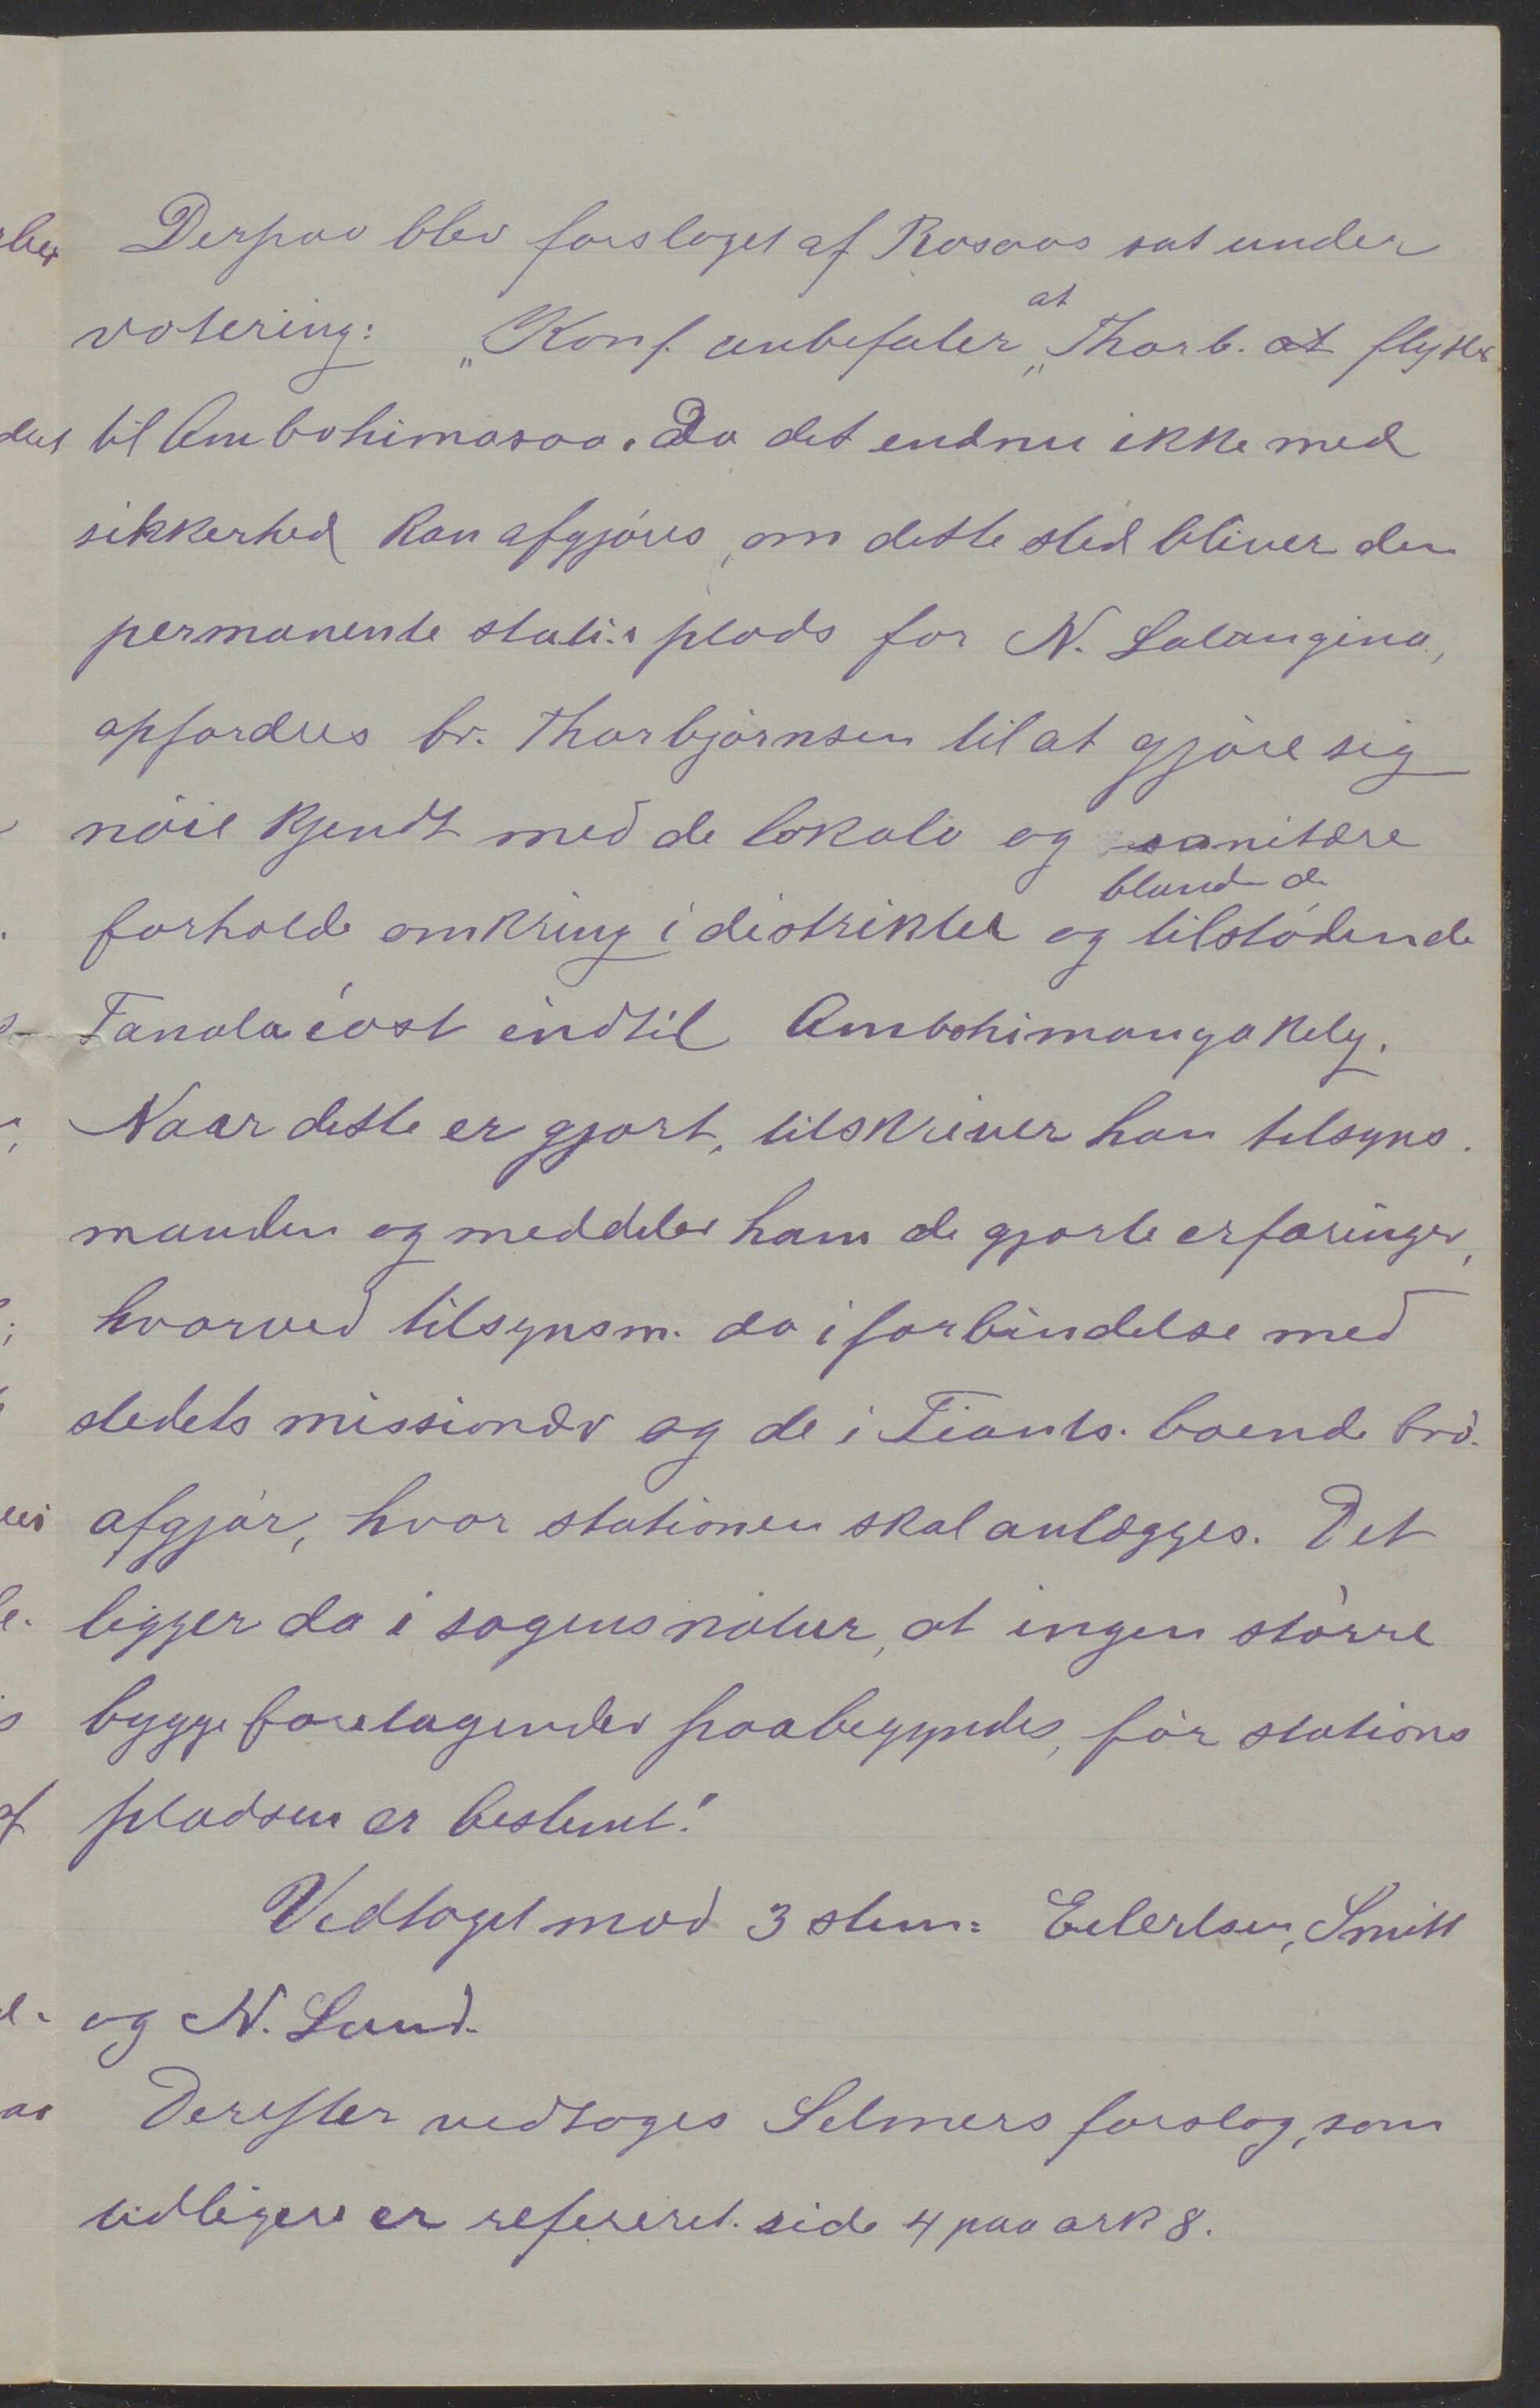 Derpaa blev forslaget af Rosaas sat under
votering: „Konf. anbefaler at Thorb. at flytter
til Ambohimasoa. Da det endnu ikke med
sikkerhed kan afgjøres, om dette sted bliver den
permanente statis plads for N. Lalangina,
opfordres br. Thorbjørnsen til at gjøre sig
nøie kjendt med de lokale og sanitære
forholde omkring i distriktet og blandt de tilstødende
Tanala i øst indtil Ambohimanga kely.
Naar dette er gjort, tilskriver han tilsyns.
manden og meddeler ham de gjorte erfaringer,
hvorved tilsynsm. da i forbindelse med
stedets missionær og de i Fiants. boende brø.
afgjør, hvor stationen skal anlægges. Det
ligger da i sagens natur, at ingen større
byggeforetagender paabegyndes, før stations
pladsen er bestemt."
Vedtaget mod 3 stem: Eilertsen, Smitt
og N. Lund.
Derefter vedtoges Selmers forslag, som
tidligere er refereret side 4 paa ark 8.